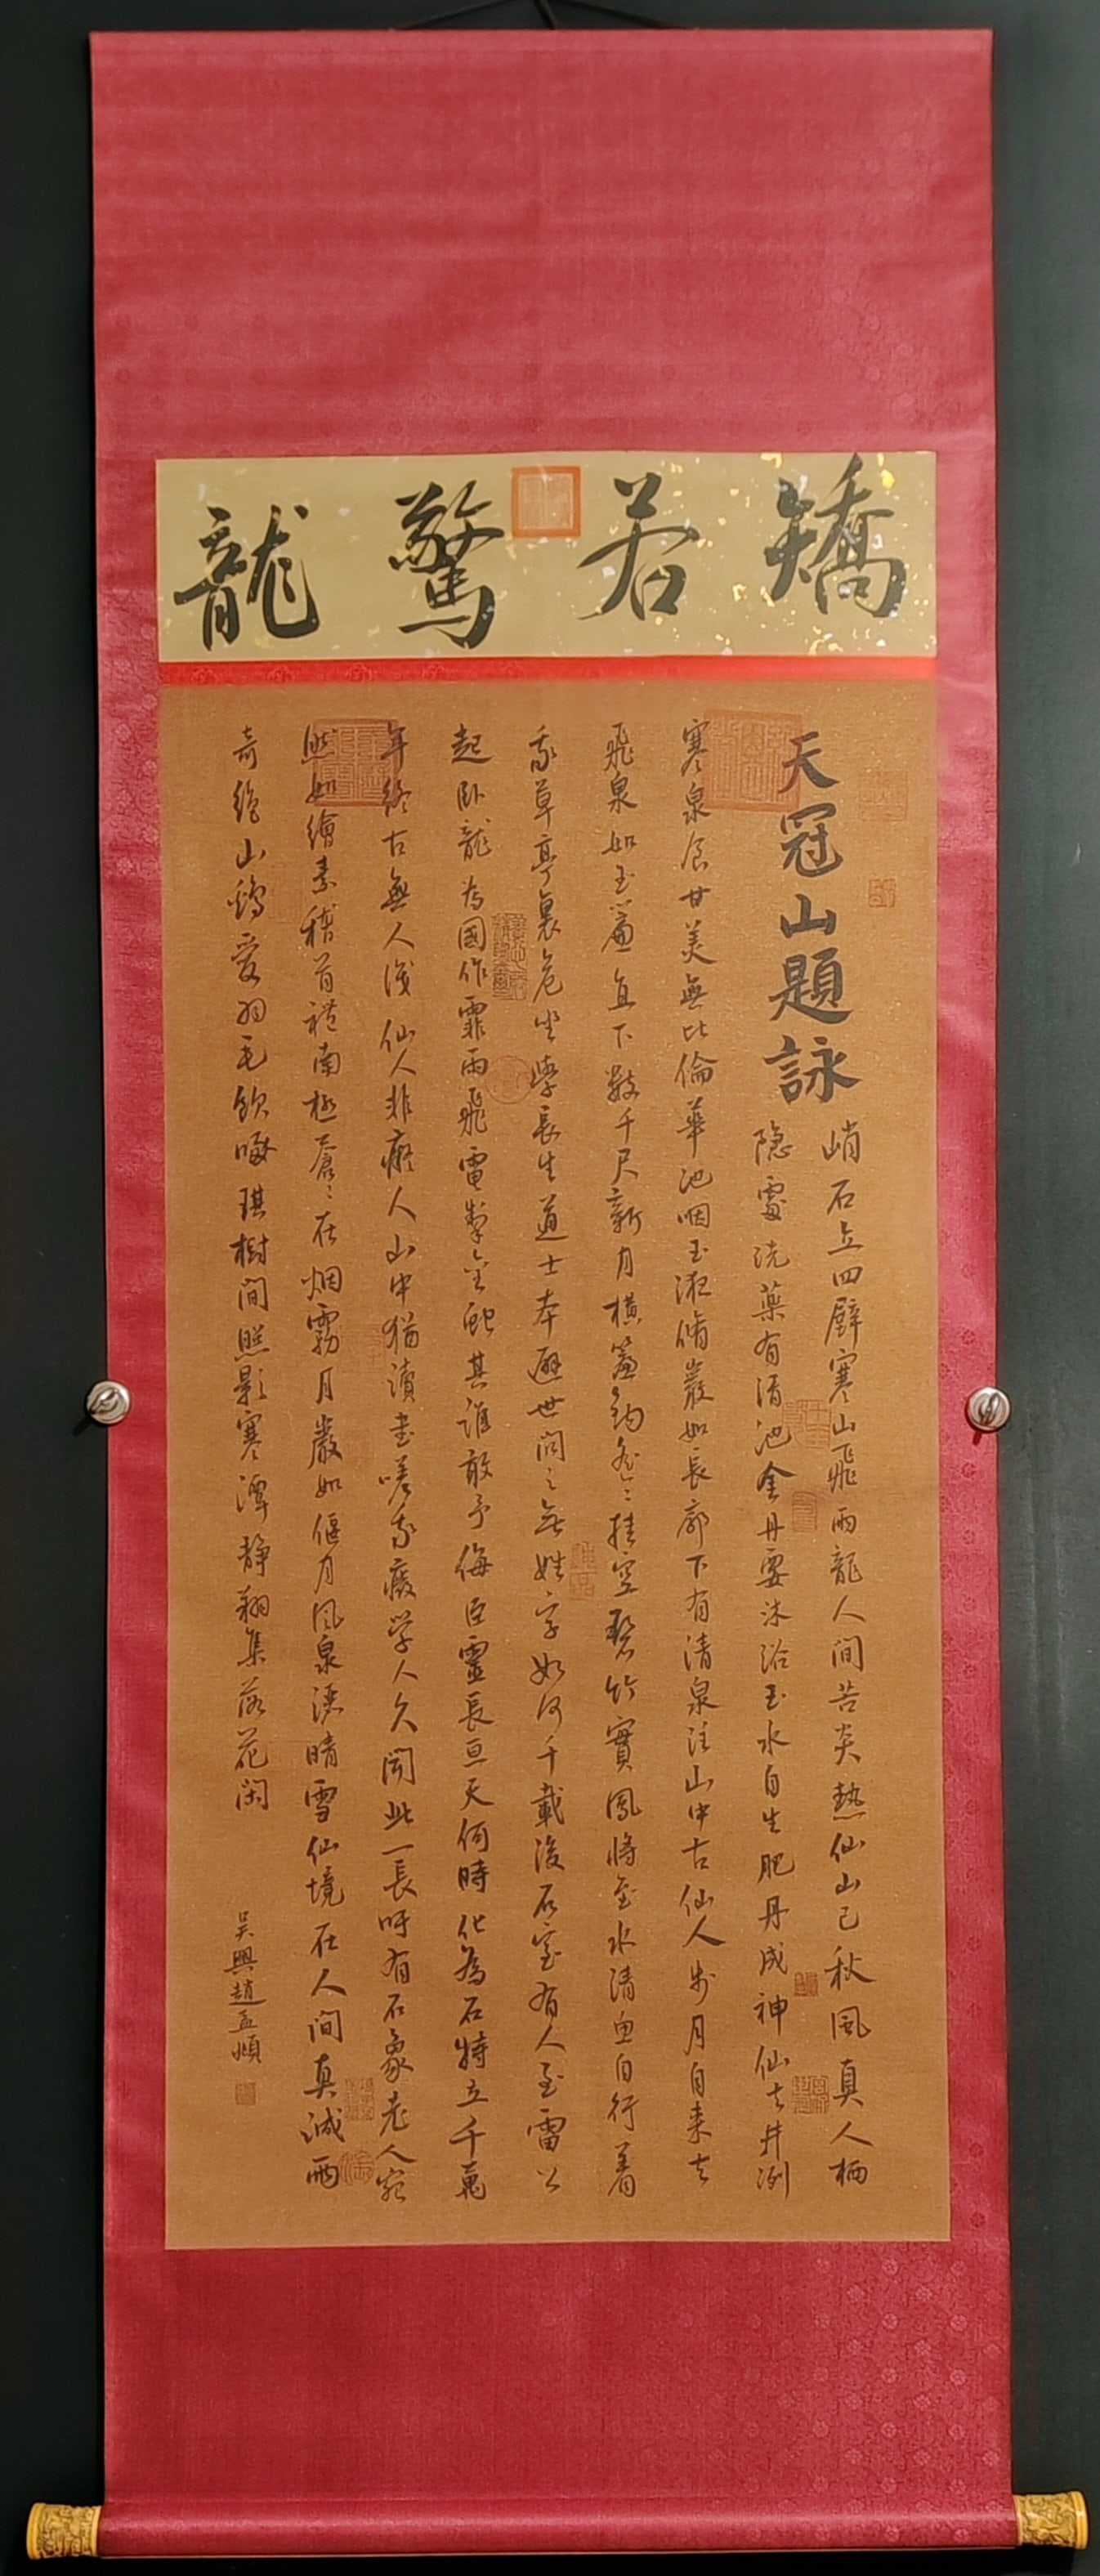 矯若驚龍
天冠山題詠
峭石立四壁寒山飛雨龍人間苦炎熱仙山已秋風真人栖
隐處洗藥有清池金丹要沐浴玉水自生肥丹成神仙去井冽
寒泉食甘美無比倫華池咽玉液脩巖如長廊下有清泉注山中古仙人步月自来去
飛泉如玉簾直下数千尺新月橫簾鈎遙遙挂空碧竹實鳳將至水清魚自行着
我草亭裏危坐學長生道士本避世問之無姓字如何千載後石室有人至雷公
起卧龍为國作霖雨飛電掣金蛇其誰敢予侮巨靈長亘天何時化為石特立千萬
年終古無人識仙人非癡人山中猶讀書嗟我癈学人久聞此一長吁有石象老人宛
然如繪素稽首禮南極蒼〻在烟霧月巖如偃月风泉洒晴雪仙境在人间真誠两
奇絶山鷄愛羽毛飲啄琪樹間照影寒潭静翔集落花闲
吴興趙孟頫